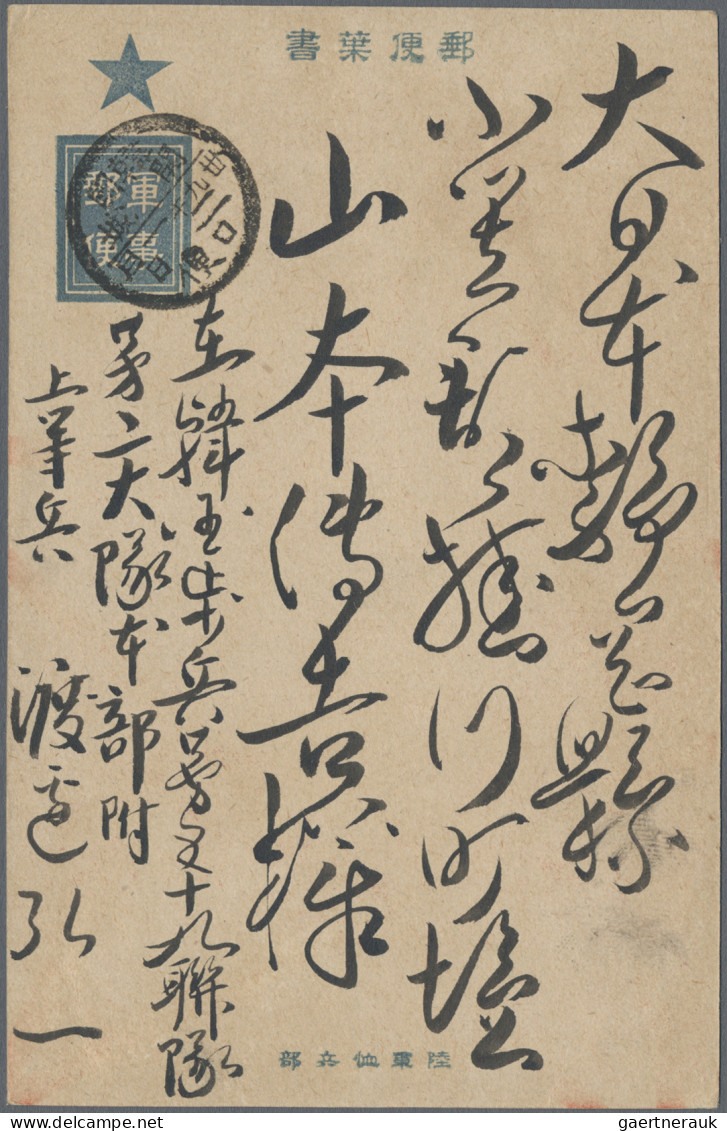 郵便葉書
軍事
郵便
大日本静岡縣
小笠郡掛川町塩
山本傳吉様
在韓国歩兵第五十九聯隊
第二大隊本部附
上等兵
渡邉弘一
陸軍恤兵部
Copyright-PHILASEARCH.COM
gaertnerauk